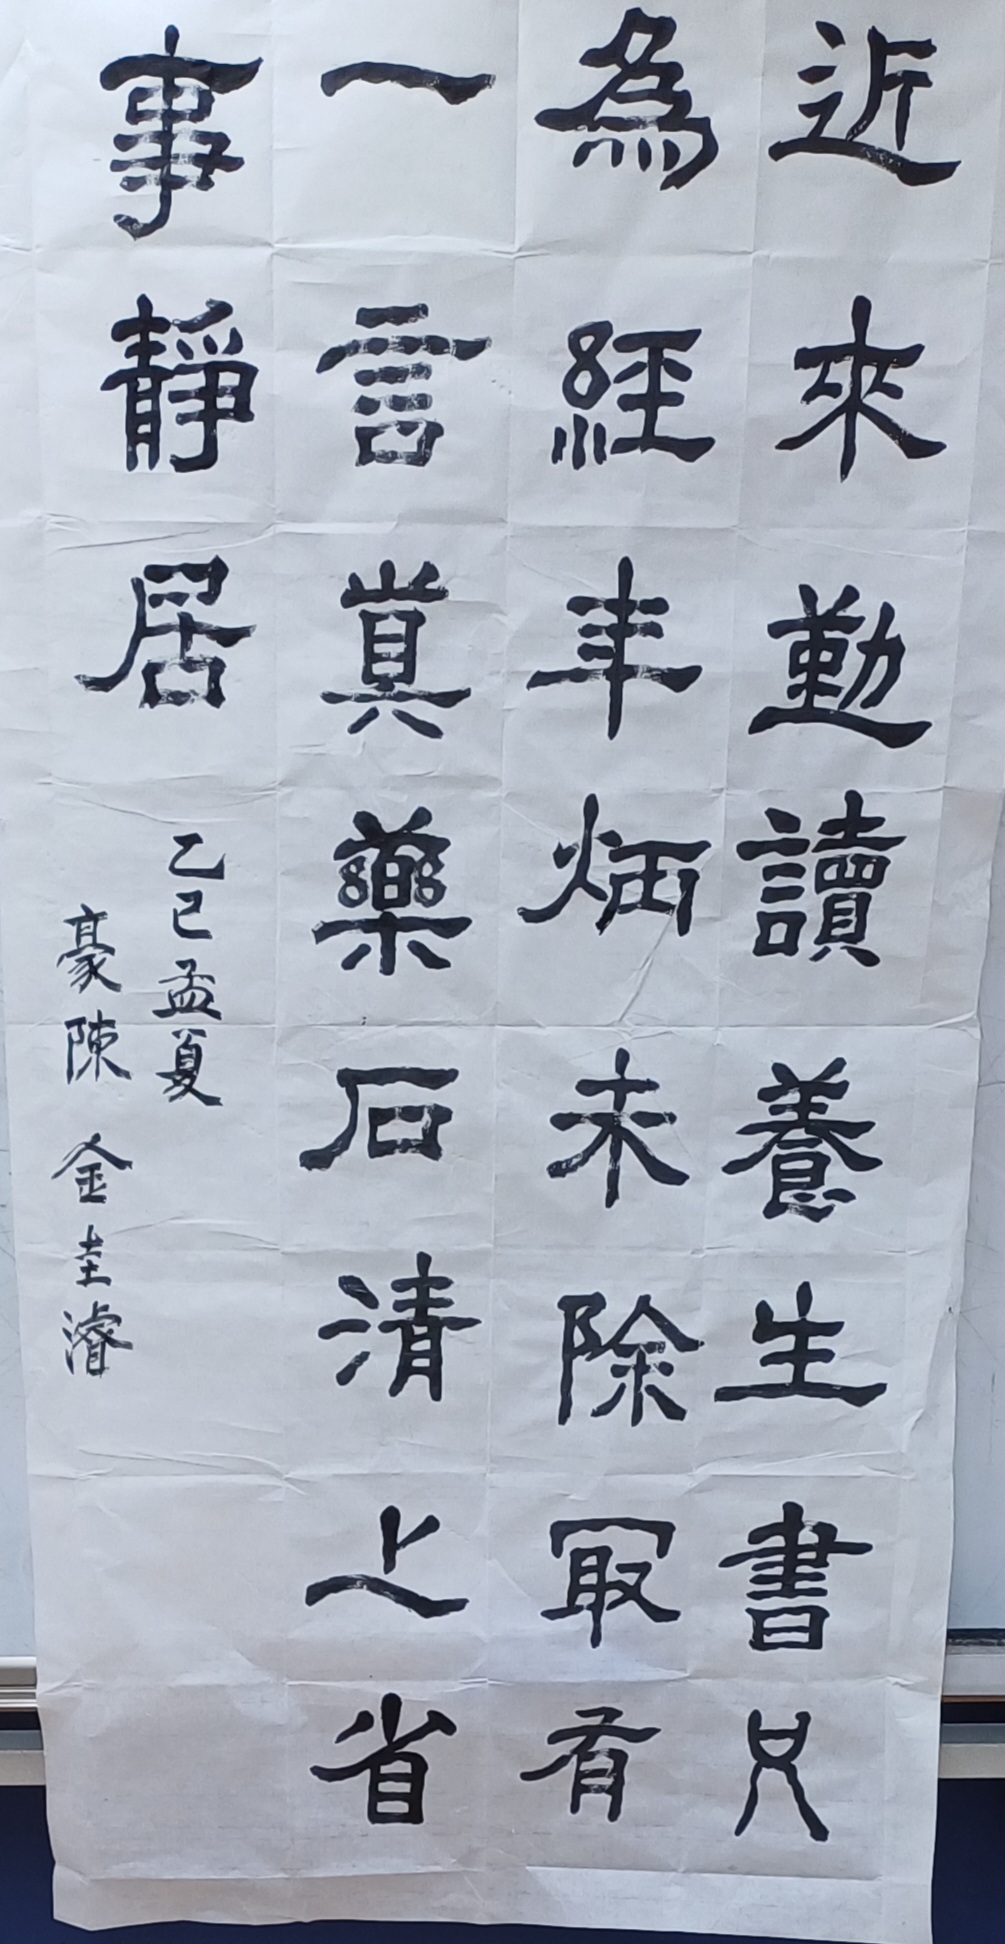 近來勤讀養生書只
為經年炳未除冣有
一言真藥石清心省
事靜居
乙巳孟夏
豪陳 金圭濬